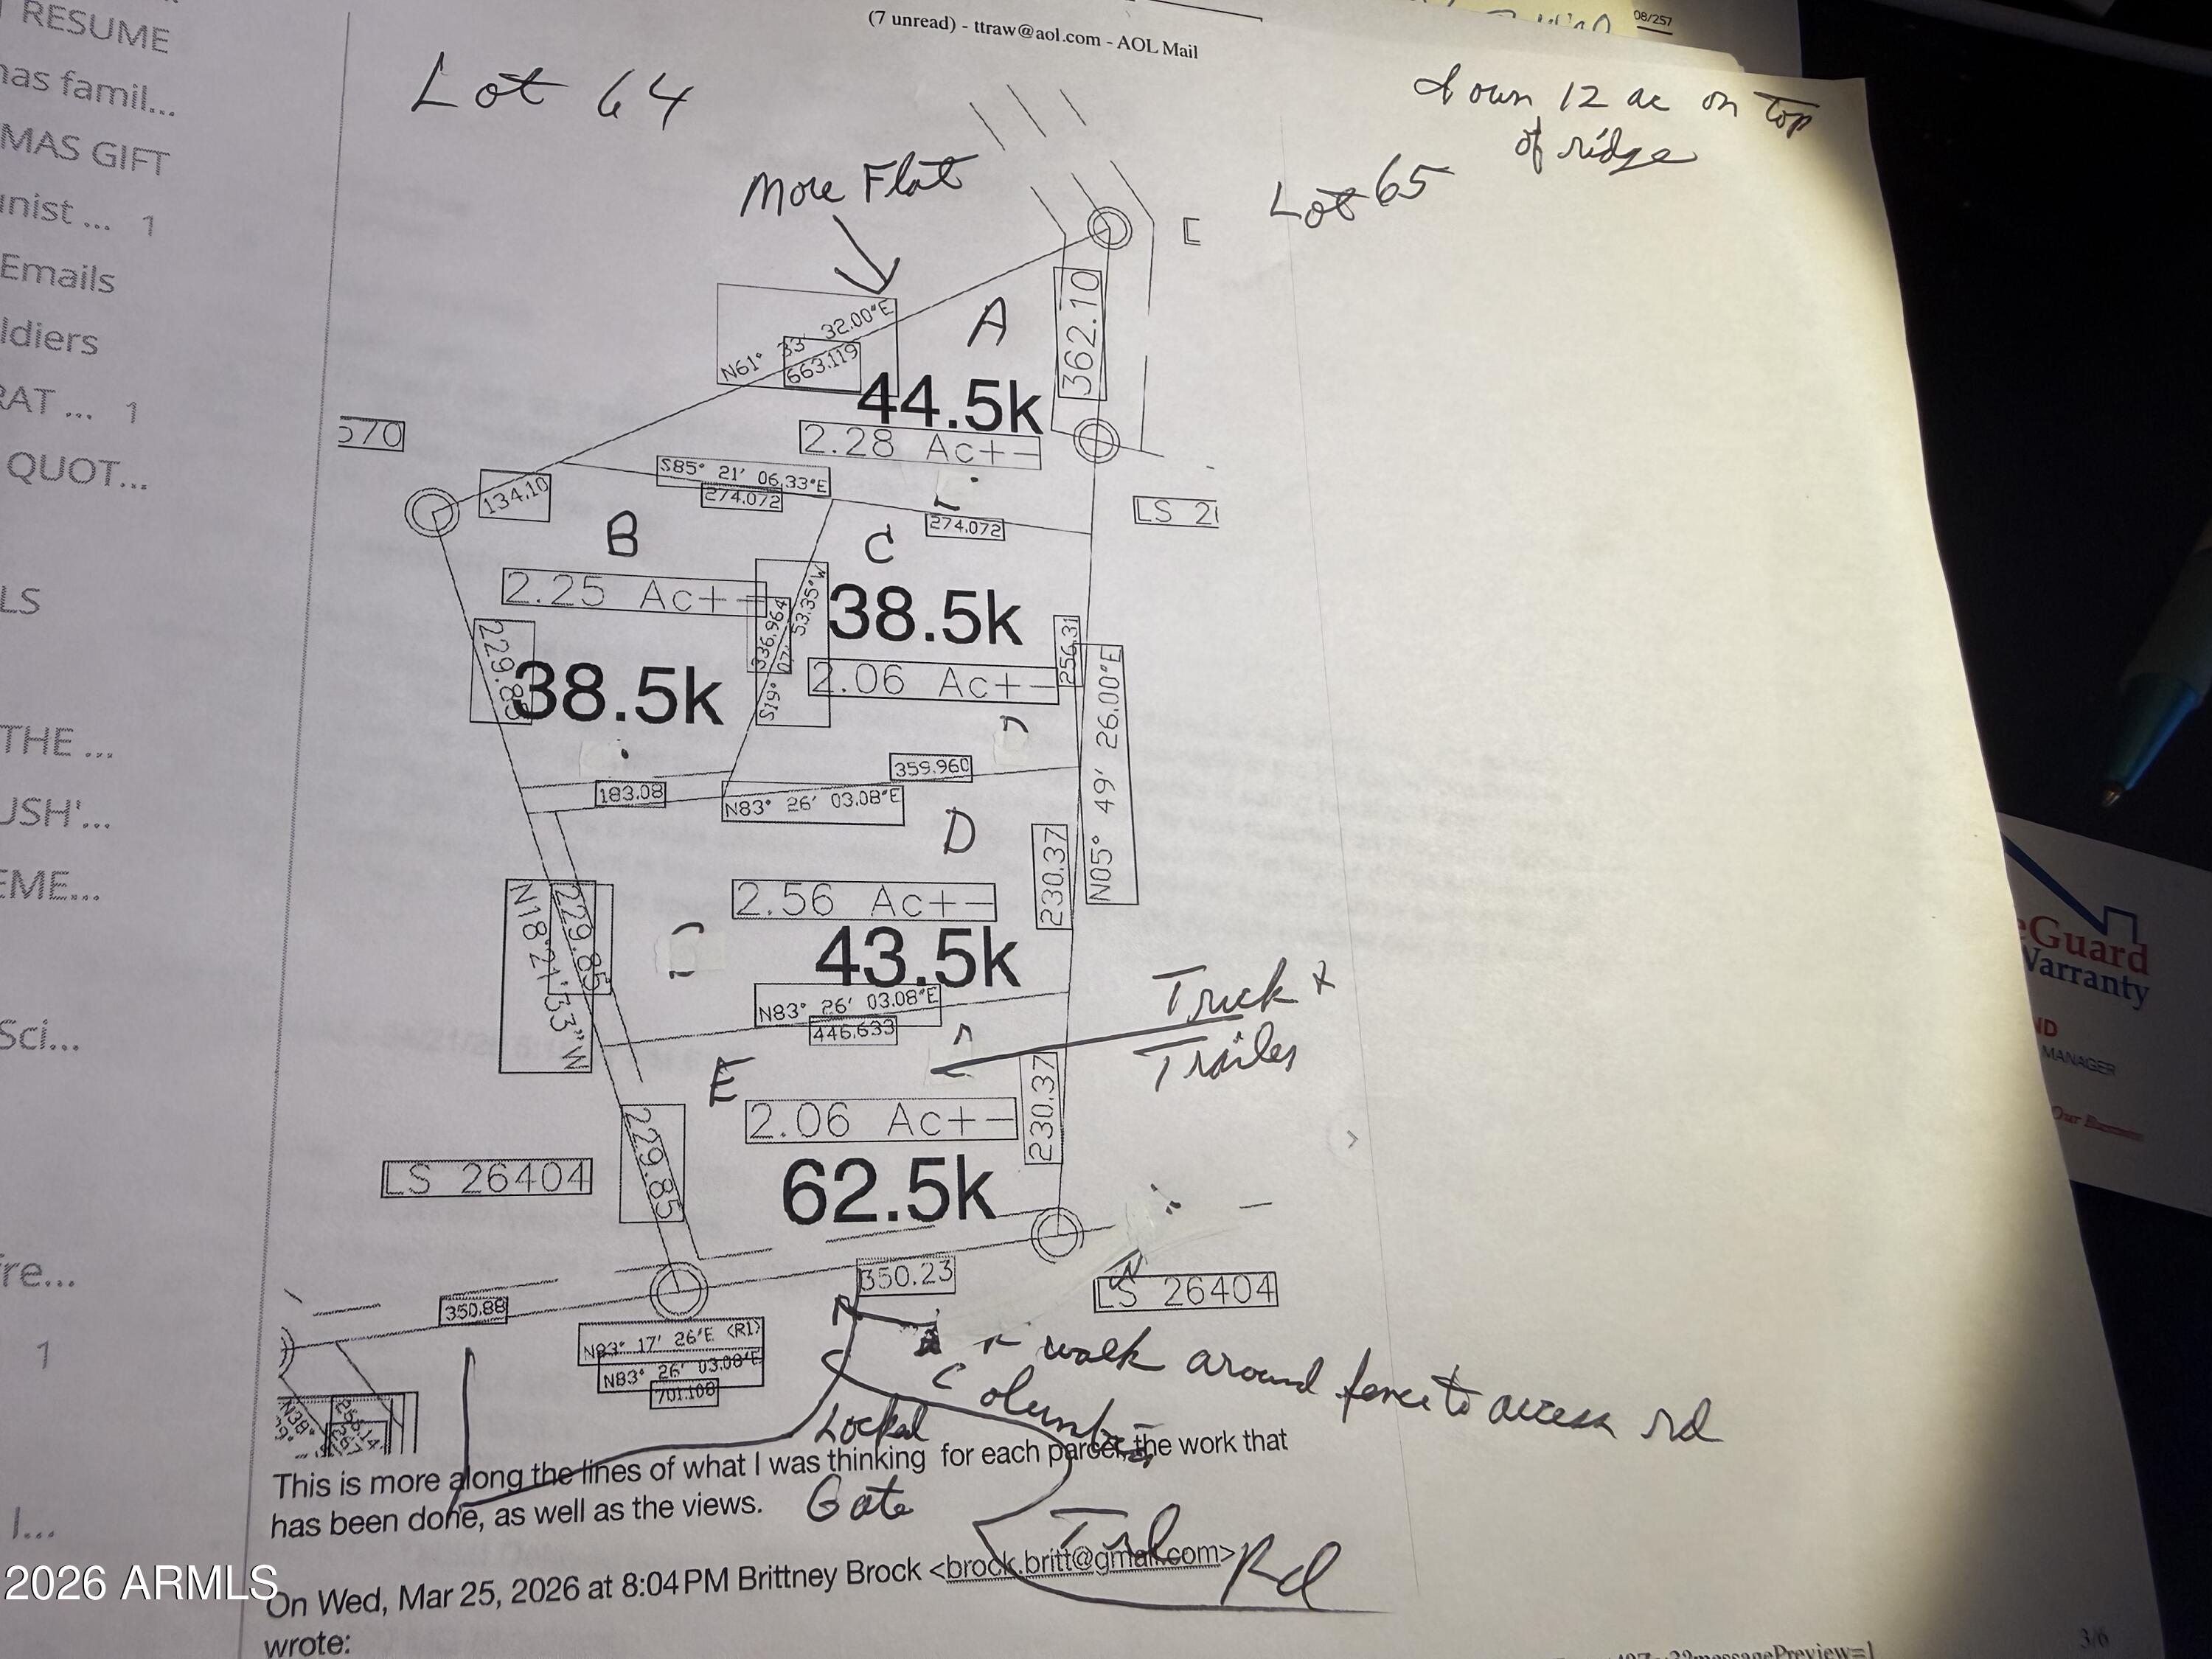 RESUME
has famil...
MAS GIFT
nist ... 1
Emails
ldiers
RAT ... 1
QUOT...
LS
THE ...
USH'...
EME...
Sci...
re...
1
I...
(7 unread) - ttraw@aol.com - AOL Mail
08/257
Lot 64
I own 12 ac on Top
of ridge
More Flat
Lot 65
A
362.10
N61° 33' 32.00"E
663.119
44.5k
2.28 Ac+-
570
134.10
S85° 21' 06.33"E
274.072
274.072
LS 2
B
C
2.25 Ac+-
336.964
S19° 07' 53.35"W
38.5k
229.85
38.5k
2.06 Ac+-
256.31
N05° 49' 26.00"E
359.960
183.08
N83° 26' 03.08"E
D
230.37
2.56 Ac+-
N18°21'33"W
229.85
43.5k
N83° 26' 03.08"E
446.633
Truck &
Trailer
E
230.37
2.06 Ac+-
LS 26404
229.85
62.5k
350.23
LS 26404
350.88
N83° 17' 26"E (R1)
N83° 26' 03.08"E
701.108
walk around fence to access rd
Columbia
Locked
Gate
This is more along the lines of what I was thinking for each parcel, the work that
has been done, as well as the views.
Trl Rd
On Wed, Mar 25, 2026 at 8:04 PM Brittney Brock <brock.britt@gmail.com>
wrote:
3/6
messagePreview=1
eGuard
Warranty
ND
MANAGER
Our Business
2026 ARMLS